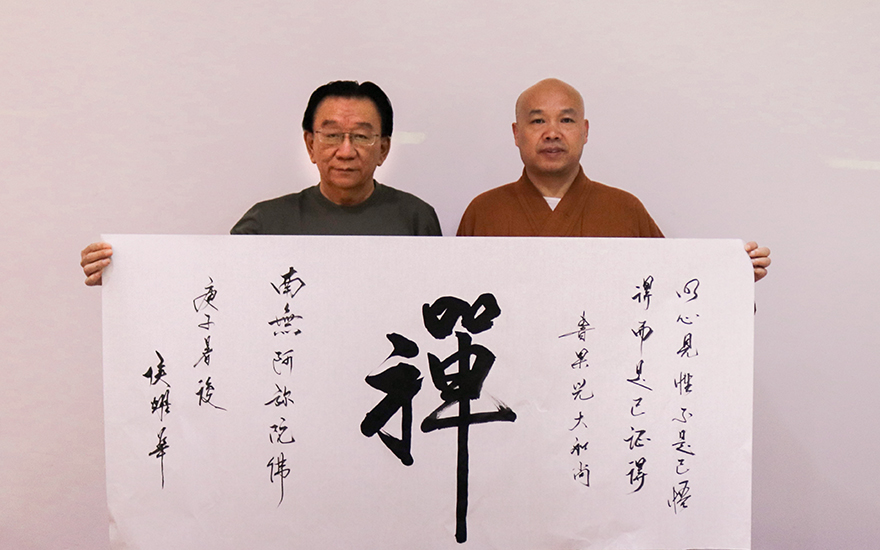 明心見性不是已悟
得而是已证得
書果光大和尚
禪
南無阿弥陀佛
庚子暑後
侯耀華